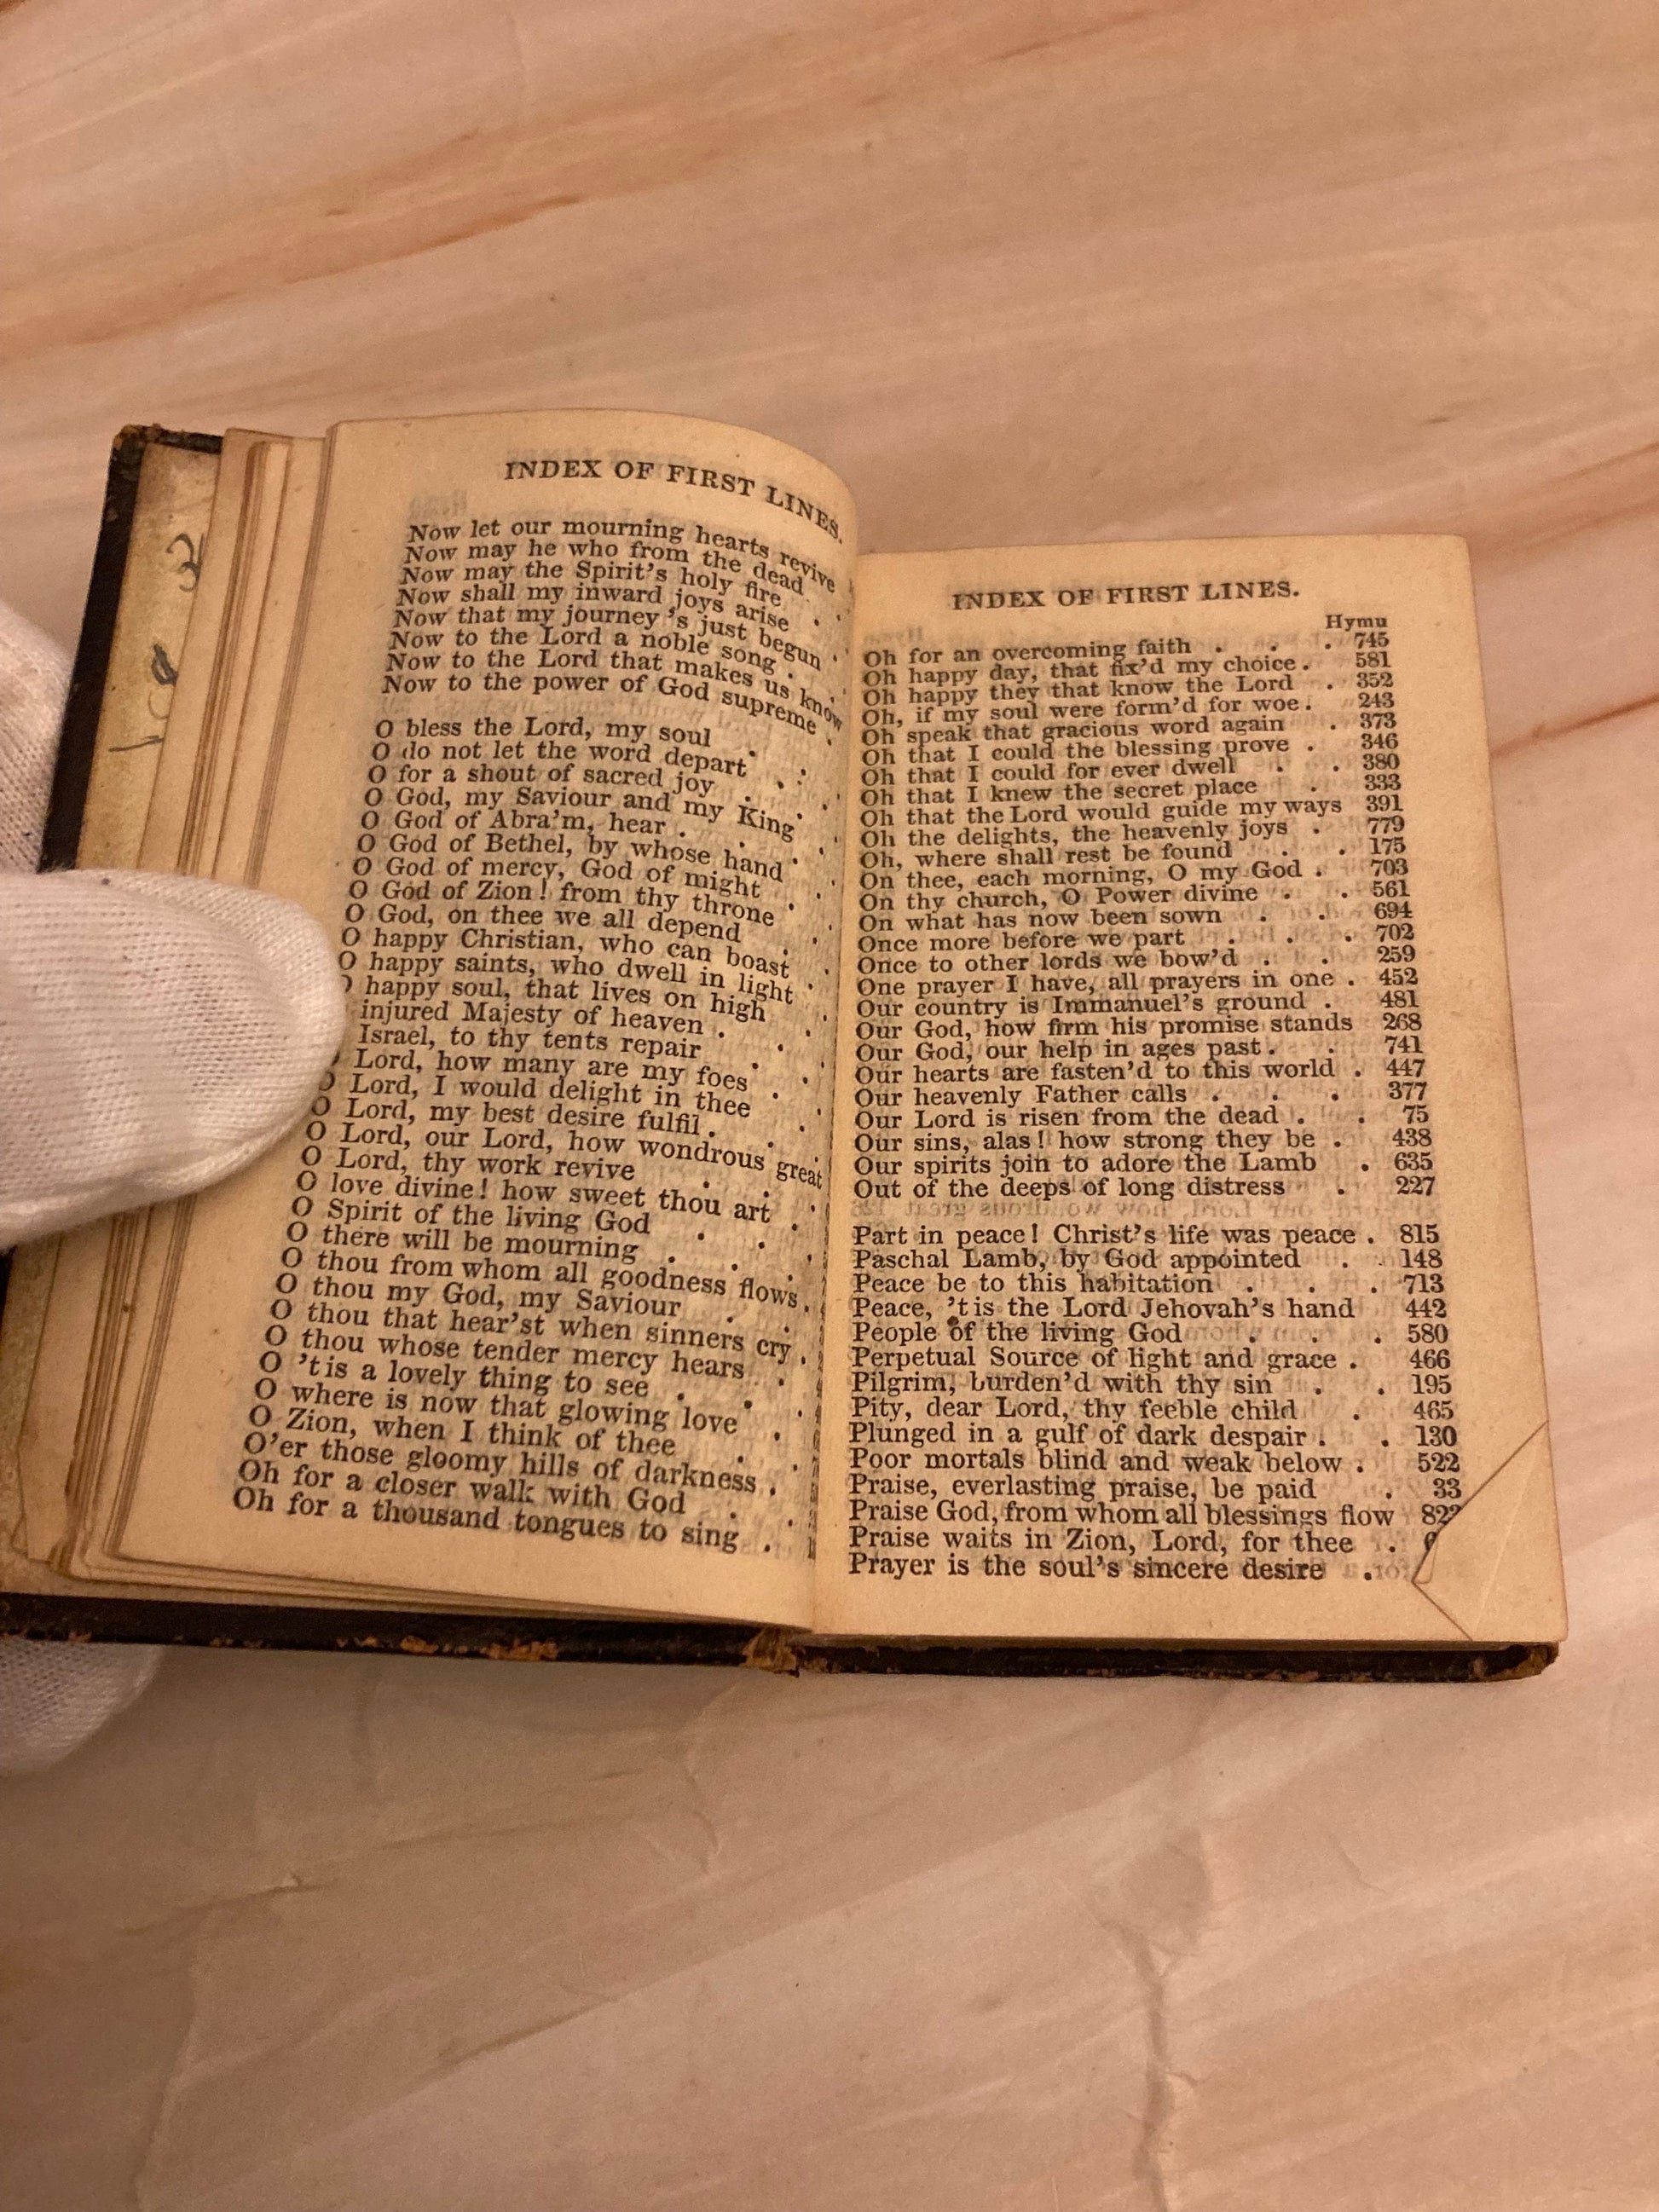 INDEX OF FIRST LINES.
Now let our mourning hearts revive
Now may he who from the dead
Now may the Spirit's holy fire
Now shall my inward joys arise
Now that my journey 's just begun
Now to the Lord a noble song
Now to the Lord that makes us know
Now to the power of God supreme
O bless the Lord, my soul
O do not let the word depart
O for a shout of sacred joy
O God, my Saviour and my King
O God of Abra'm, hear
O God of Bethel, by whose hand
O God of mercy, God of might
O God of Zion! from thy throne
O God, on thee we all depend
O happy Christian, who can boast
O happy saints, who dwell in light
O happy soul, that lives on high
injured Majesty of heaven
Israel, to thy tents repair
O Lord, how many are my foes
O Lord, I would delight in thee
O Lord, my best desire fulfil
O Lord, our Lord, how wondrous great
O Lord, thy work revive
O love divine! how sweet thou art
O Spirit of the living God
O there will be mourning
O thou from whom all goodness flows
O thou my God, my Saviour
O thou that hear'st when sinners cry
O thou whose tender mercy hears
O 'tis a lovely thing to see
O where is now that glowing love
O Zion, when I think of thee
O'er those gloomy hills of darkness
Oh for a closer walk with God
Oh for a thousand tongues to sing
INDEX OF FIRST LINES.
Hymn
Oh for an overcoming faith . . . 745
Oh happy day, that fix'd my choice . 581
Oh happy they that know the Lord . 352
Oh, if my soul were form'd for woe . 243
Oh speak that gracious word again . 373
Oh that I could the blessing prove . 346
Oh that I could for ever dwell . . 380
Oh that I knew the secret place . 333
Oh that the Lord would guide my ways 391
Oh the delights, the heavenly joys . 779
Oh, where shall rest be found . . 175
On thee, each morning, O my God . 703
On thy church, O Power divine . . 561
On what has now been sown . . 694
Once more before we part . . . 702
Once to other lords we bow'd . . 259
One prayer I have, all prayers in one . 452
Our country is Immanuel's ground . 481
Our God, how firm his promise stands 268
Our God, our help in ages past . . 741
Our hearts are fasten'd to this world . 447
Our heavenly Father calls . . . 377
Our Lord is risen from the dead . . 75
Our sins, alas! how strong they be . 438
Our spirits join to adore the Lamb . 635
Out of the deeps of long distress . 227
Part in peace! Christ's life was peace . 815
Paschal Lamb, by God appointed . . 148
Peace be to this habitation . . . 713
Peace, 'tis the Lord Jehovah's hand 442
People of the living God . . . 580
Perpetual Source of light and grace . 466
Pilgrim, burden'd with thy sin . . 195
Pity, dear Lord, thy feeble child . 465
Plunged in a gulf of dark despair . . 130
Poor mortals blind and weak below . 522
Praise, everlasting praise, be paid . 33
Praise God, from whom all blessings flow
Praise waits in Zion, Lord, for thee .
Prayer is the soul's sincere desire .